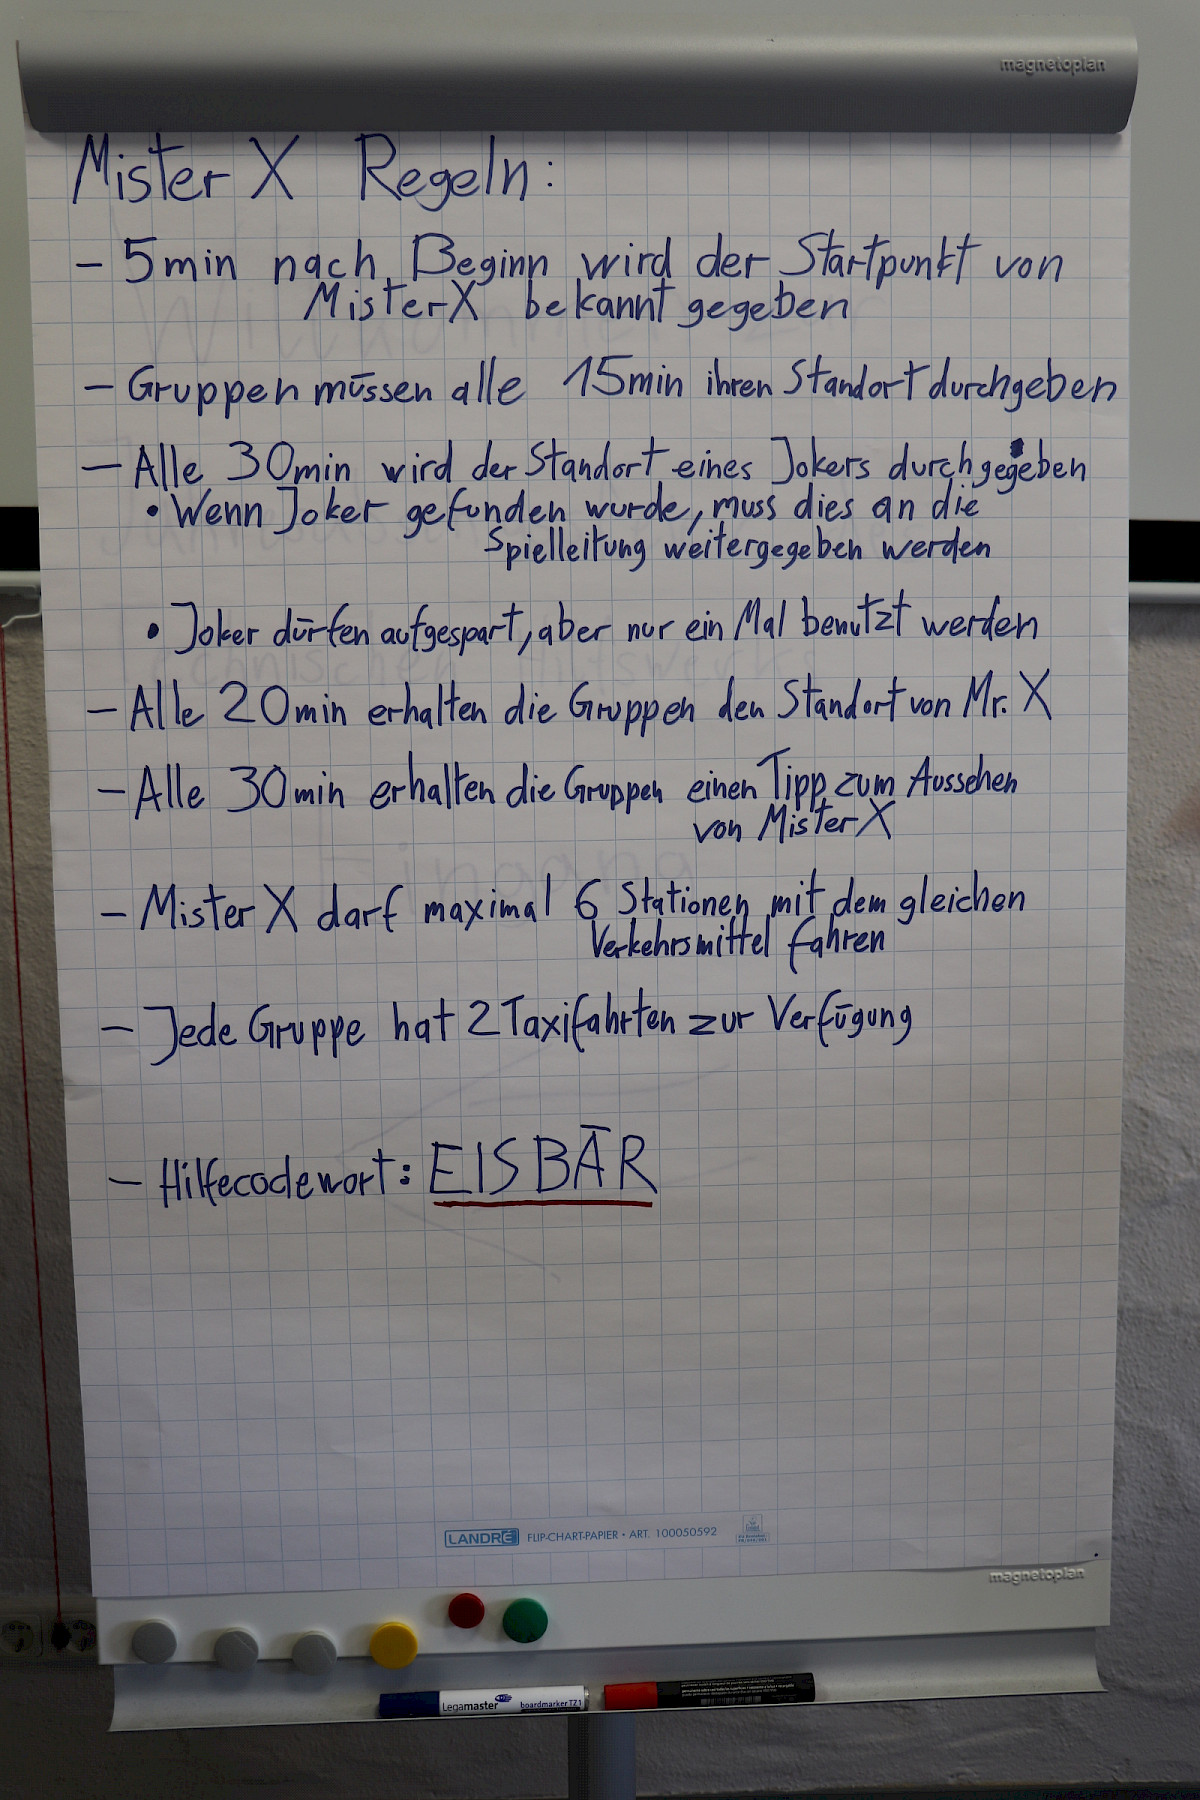 magnetoplan
Mister X Regeln:
- 5min nach Beginn wird der Startpunkt von
Mister X bekannt gegeben
- Gruppen müssen alle 15min ihren Standort durchgeben
- Alle 30min wird der Standort eines Jokers durchgegeben
• Wenn Joker gefunden wurde, muss dies an die
Spielleitung weitergegeben werden
• Joker dürfen aufgespart, aber nur ein Mal benutzt werden
- Alle 20min erhalten die Gruppen den Standort von Mr. X
- Alle 30min erhalten die Gruppen einen Tipp zum Aussehen
von Mister X
- Mister X darf maximal 6 Stationen mit dem gleichen
Verkehrsmittel fahren
- Jede Gruppe hat 2 Taxifahrten zur Verfügung
- Hilfecodewort: EISBÄR
LANDRÉ FLIP-CHART-PAPIER • ART. 100050592
magnetoplan
Legamaster boardmarker TZ1